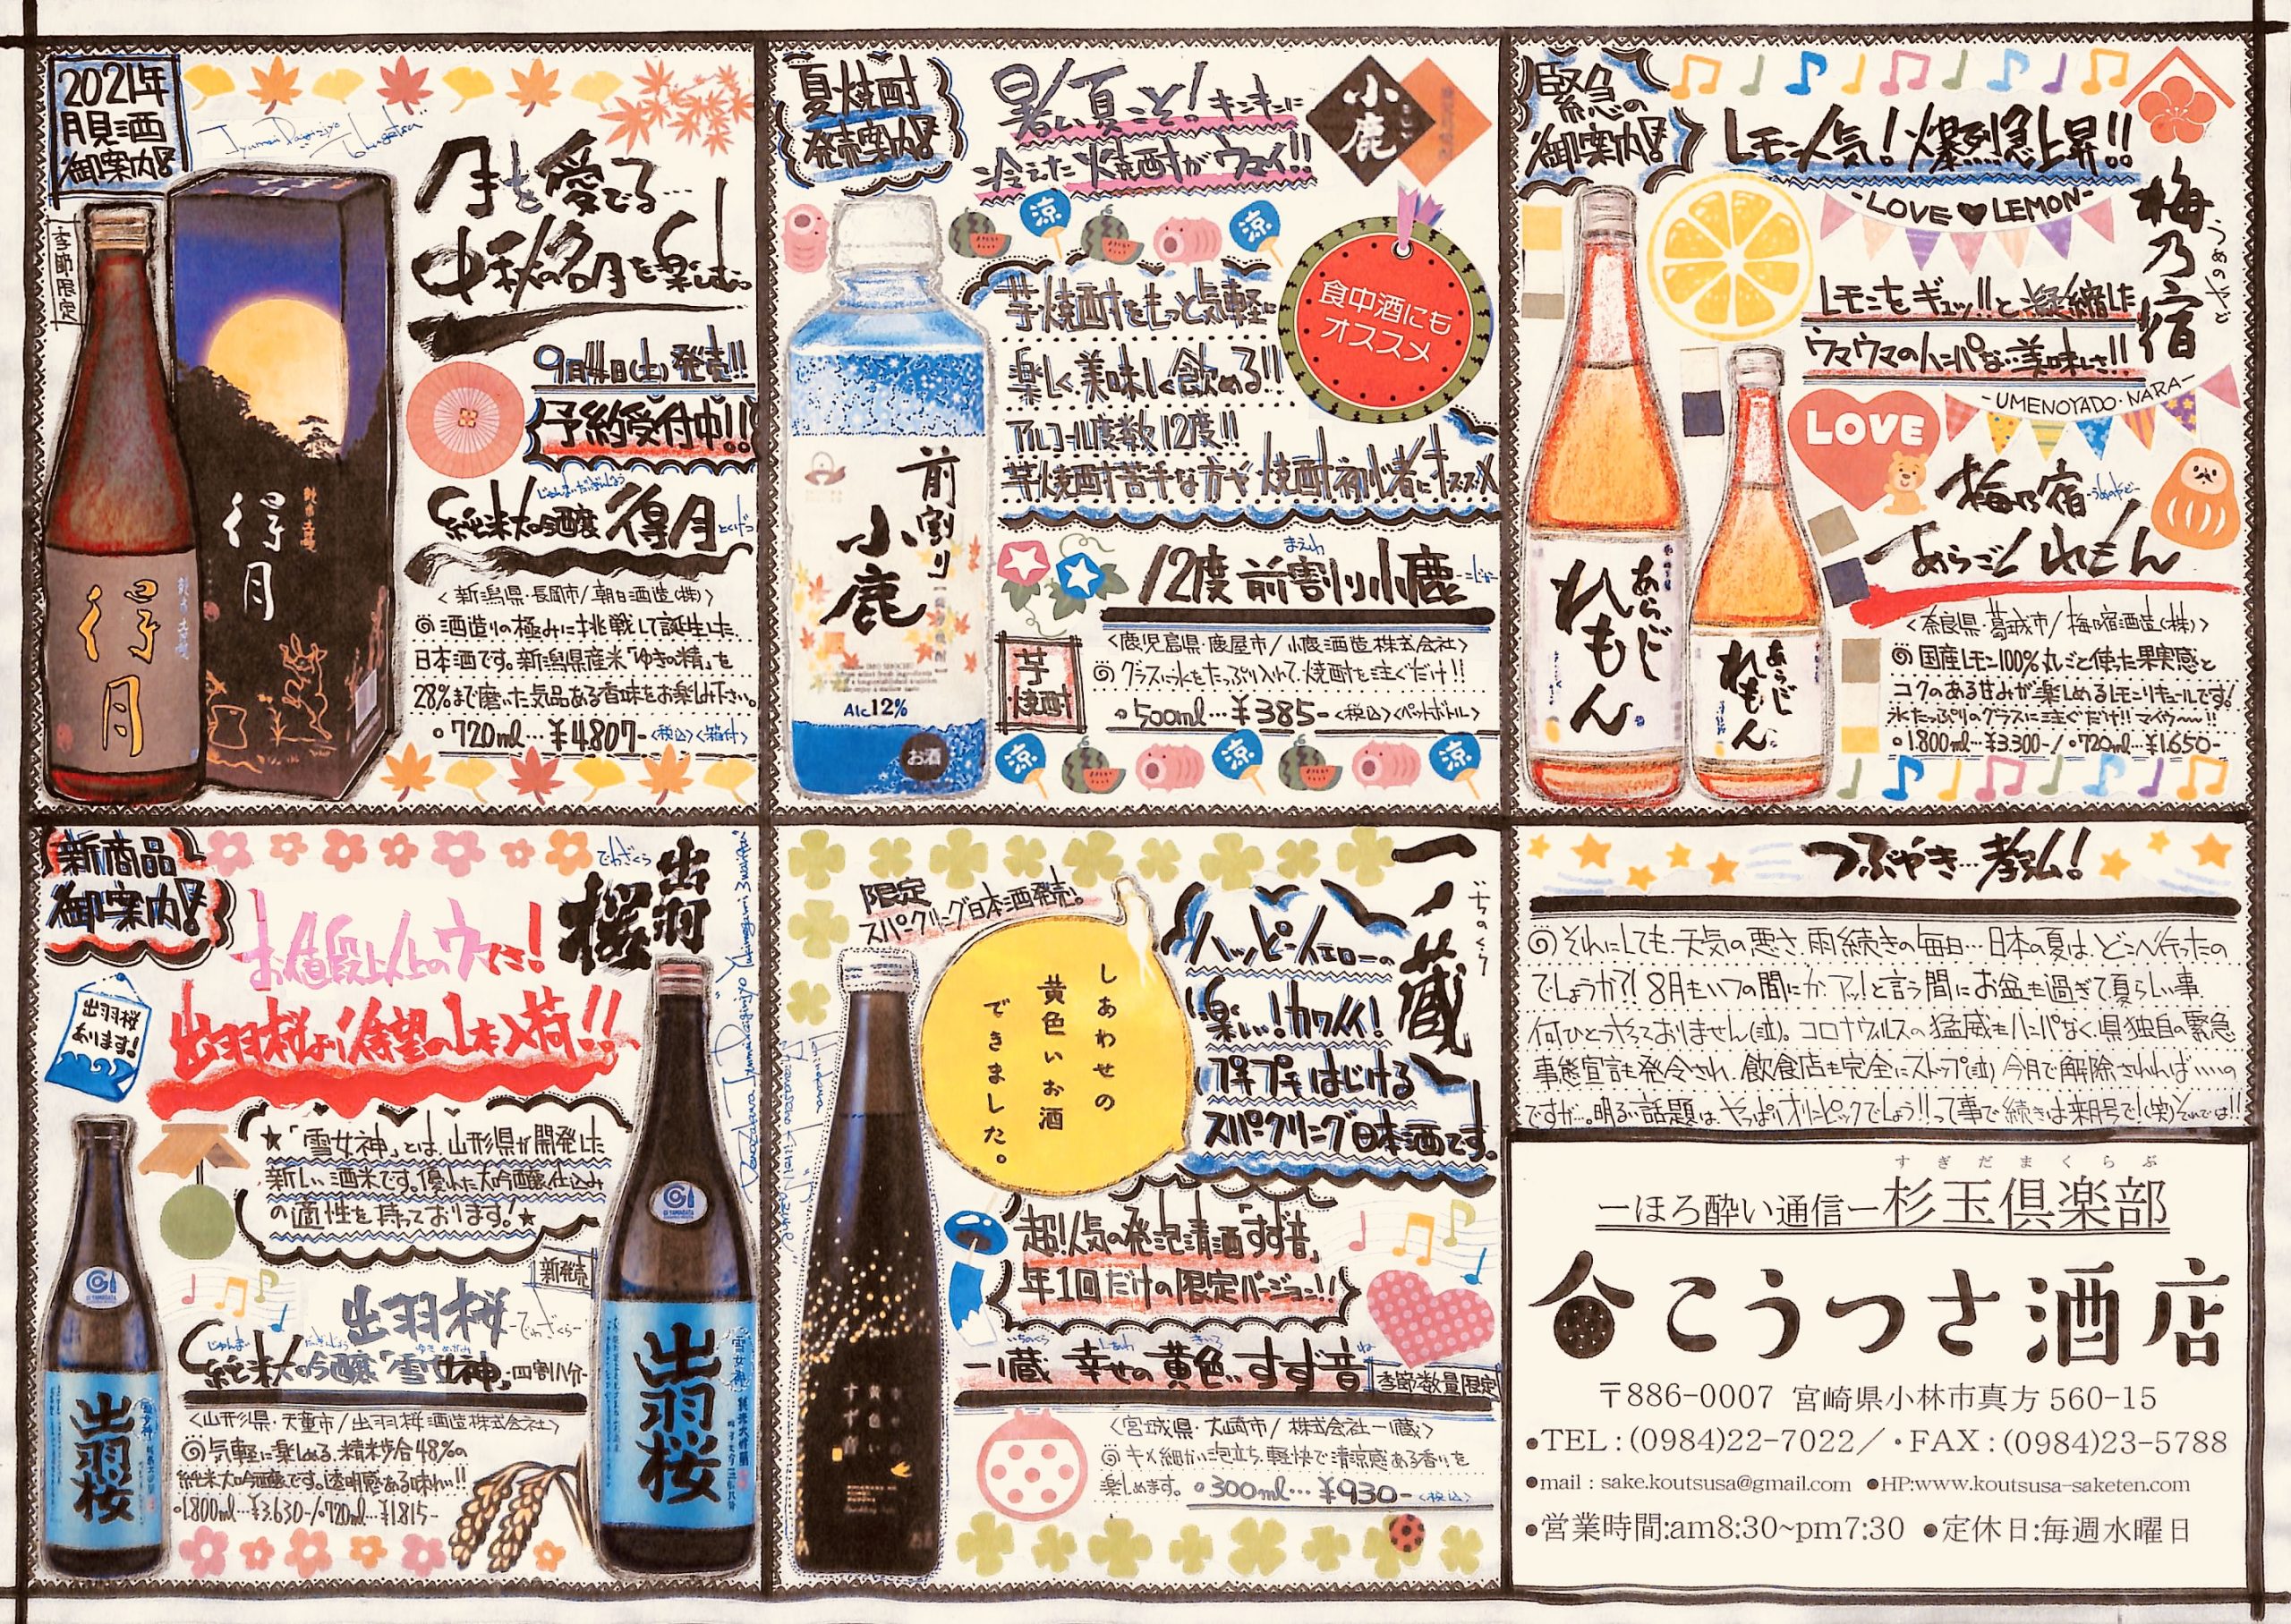 2021年
月見酒
御案内!!
季節限定
月を愛でる…
中秋の名月を楽しむ
9月4日(土)発売!!
予約受付中!!
じゅんまいだいぎんじょう
純米大吟醸 得月 とくげつ
<新潟県・長岡市/朝日酒造(株)>
◎酒造りの極みに挑戦して誕生した
日本酒です。新潟県産米「ゆきの精」を
28%まで磨いた気品ある香味をお楽しみ下さい。
・720ml…¥4807-<税込><箱付>
得月
得月
夏焼酎
発売案内!!
暑い夏こそ!キンキンに
冷えた焼酎がウマイ!!
小鹿
涼
涼
食中酒にも
オススメ
芋焼酎をもっと気軽に
楽しく美味しく飲める!!
アルコール度数12度!!
芋焼酎苦手な方や焼酎初心者にオススメ
前割り
小鹿
Alc12%
お酒
まえわり
12度 前割り小鹿 -こじか-
芋焼酎
<鹿児島県・鹿屋市/小鹿酒造株式会社>
◎グラスに氷をたっぷり入れて、焼酎を注ぐだけ!!
・500ml…¥385-<税込><ペットボトル>
涼
涼
涼
緊急の
御案内!!
レモン人気!爆烈急上昇!!
-LOVE♥LEMON-
梅乃宿
うめのやど
レモンをギュッ!!と凝縮した
ウマウマのハンパない美味しさ!!
-UMENOYADO・NARA-
LOVE
梅乃宿 -うめのやど-
あらごしれもん
<奈良県・葛城市/梅乃宿酒造(株)>
◎国産レモン100%丸ごと使った果実感と
コクのある甘みが楽しめるレモンリキュールです!
氷たっぷりのグラスに注ぐだけ!!マイウ〜!!
・1.800ml…¥3.300-/・720ml…¥1.650-
あらごし
れもん
あらごし
れもん
新商品
御案内!!
お値段以上のウマさ!
でわざくら
出羽桜
出羽桜より待望の1本入荷!!
出羽桜
あります!
★「雪女神」とは、山形県が開発した
新しい酒米です。優れた大吟醸仕込み
の適性を持っております!★
新発売
出羽桜 -でわざくら-
じゅんまいだいぎんじょう ゆきめがみ
純米大吟醸「雪女神」四割八分
<山形県・天童市/出羽桜酒造株式会社>
◎気軽に楽しめる、精米歩合48%の
純米大吟醸です。透明感ある味わい!!
・1.800ml…¥3.630-/・720ml…¥1.815-
出羽桜
出羽桜
限定
スパークリング日本酒発売!
一ノ蔵
いちのくら
しあわせの
黄色いお酒
できました。
ハッピーイエローの
楽しい!カワイイ!
プチプチはじける
スパークリング日本酒です。
超!人気の発泡清酒「すず音」
年1回だけの限定バージョン!!
いちのくら しあわ きいろ ね
一ノ蔵 幸せの黄色いすず音 季節数量限定
<宮城県・大崎市/株式会社一ノ蔵>
◎キメ細かい泡立ち、軽快で清涼感ある香りを
楽しめます。・300ml…¥930-<税込>
つぶやき…孝弘!
◎それにしても、天気の悪さ、雨続きの毎日…日本の夏は、どこへ行ったの
でしょうか?!8月もいつの間にか、アッ!と言う間にお盆も過ぎて夏らしい事
何ひとつやっておりません(泣)。コロナウィルスの猛威もハンパなく、県独自の緊急
事態宣言も発令され、飲食店も完全にストップ(泣)今月で解除されれば…いいの
ですが…。明るい話題は、やっぱりオリンピックでしょう!!って事で続きは来月号で!(笑)それでは!!
すぎだまくらぶ
—ほろ酔い通信—杉玉倶楽部
こうつさ酒店
〒886-0007 宮崎県小林市真方560-15
●TEL:(0984)22-7022/・FAX:(0984)23-5788
●mail : sake.koutsusa@gmail.com ●HP:www.koutsusa-saketen.com
●営業時間:am8:30~pm7:30 ●定休日:毎週水曜日